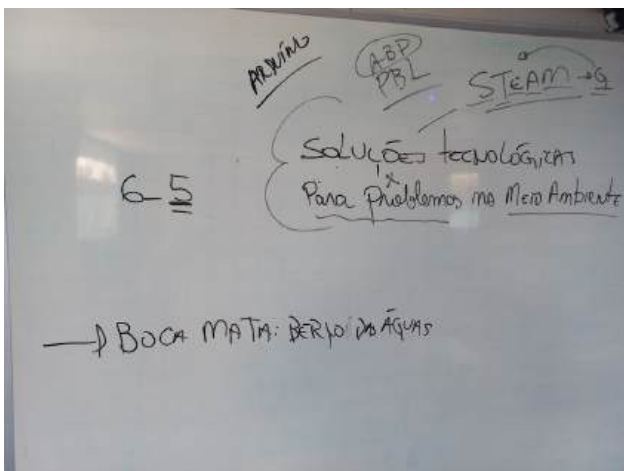 ARDUÍNO
ABP
PBL
STEAM → G
SOLUÇÕES TECNOLÓGICAS
Para problemas no Meio Ambiente
6-5
→ BOCA MATA: BERÇO DAS ÁGUAS